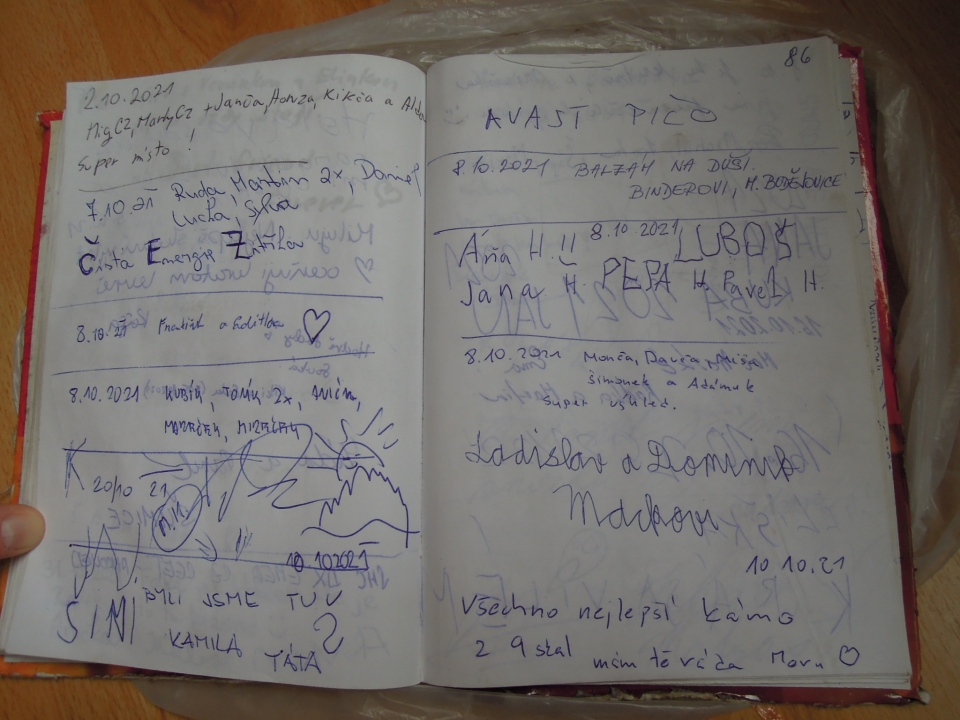 2.10.2021
MigCZ, MartyCZ + Janča, Honza, Kikča a
super místo !
7.10.21 Ruda, Martin 2x, Daniel
Lucka, Sylva
Čistá Energie Zítřka
8.10.21 František a Editka ♡
8.10.2021 KUBÍK, TOMÍK 2x,
MAZÁČEK,
K 20/10 21
M.K.
10.102021
SIMI BYLI JSME TU
KAMILA
TÁTA
86
AVAST PIČO
8.10.2021 BALZAM NA DUŠI.
BINDEROVI, M. BUDĚJOVICE
Áňa H. 8.10.2021 LUBOŠ
Jana H. PEPA H. Pavel H.
8.10.2021 Monča, Davča,
Šimonek a Adámek
super výhled.
Ladislav a Dominik
10.10.21
Všechno nejlepší kámo
z 9 skal mám tě ráda ♡